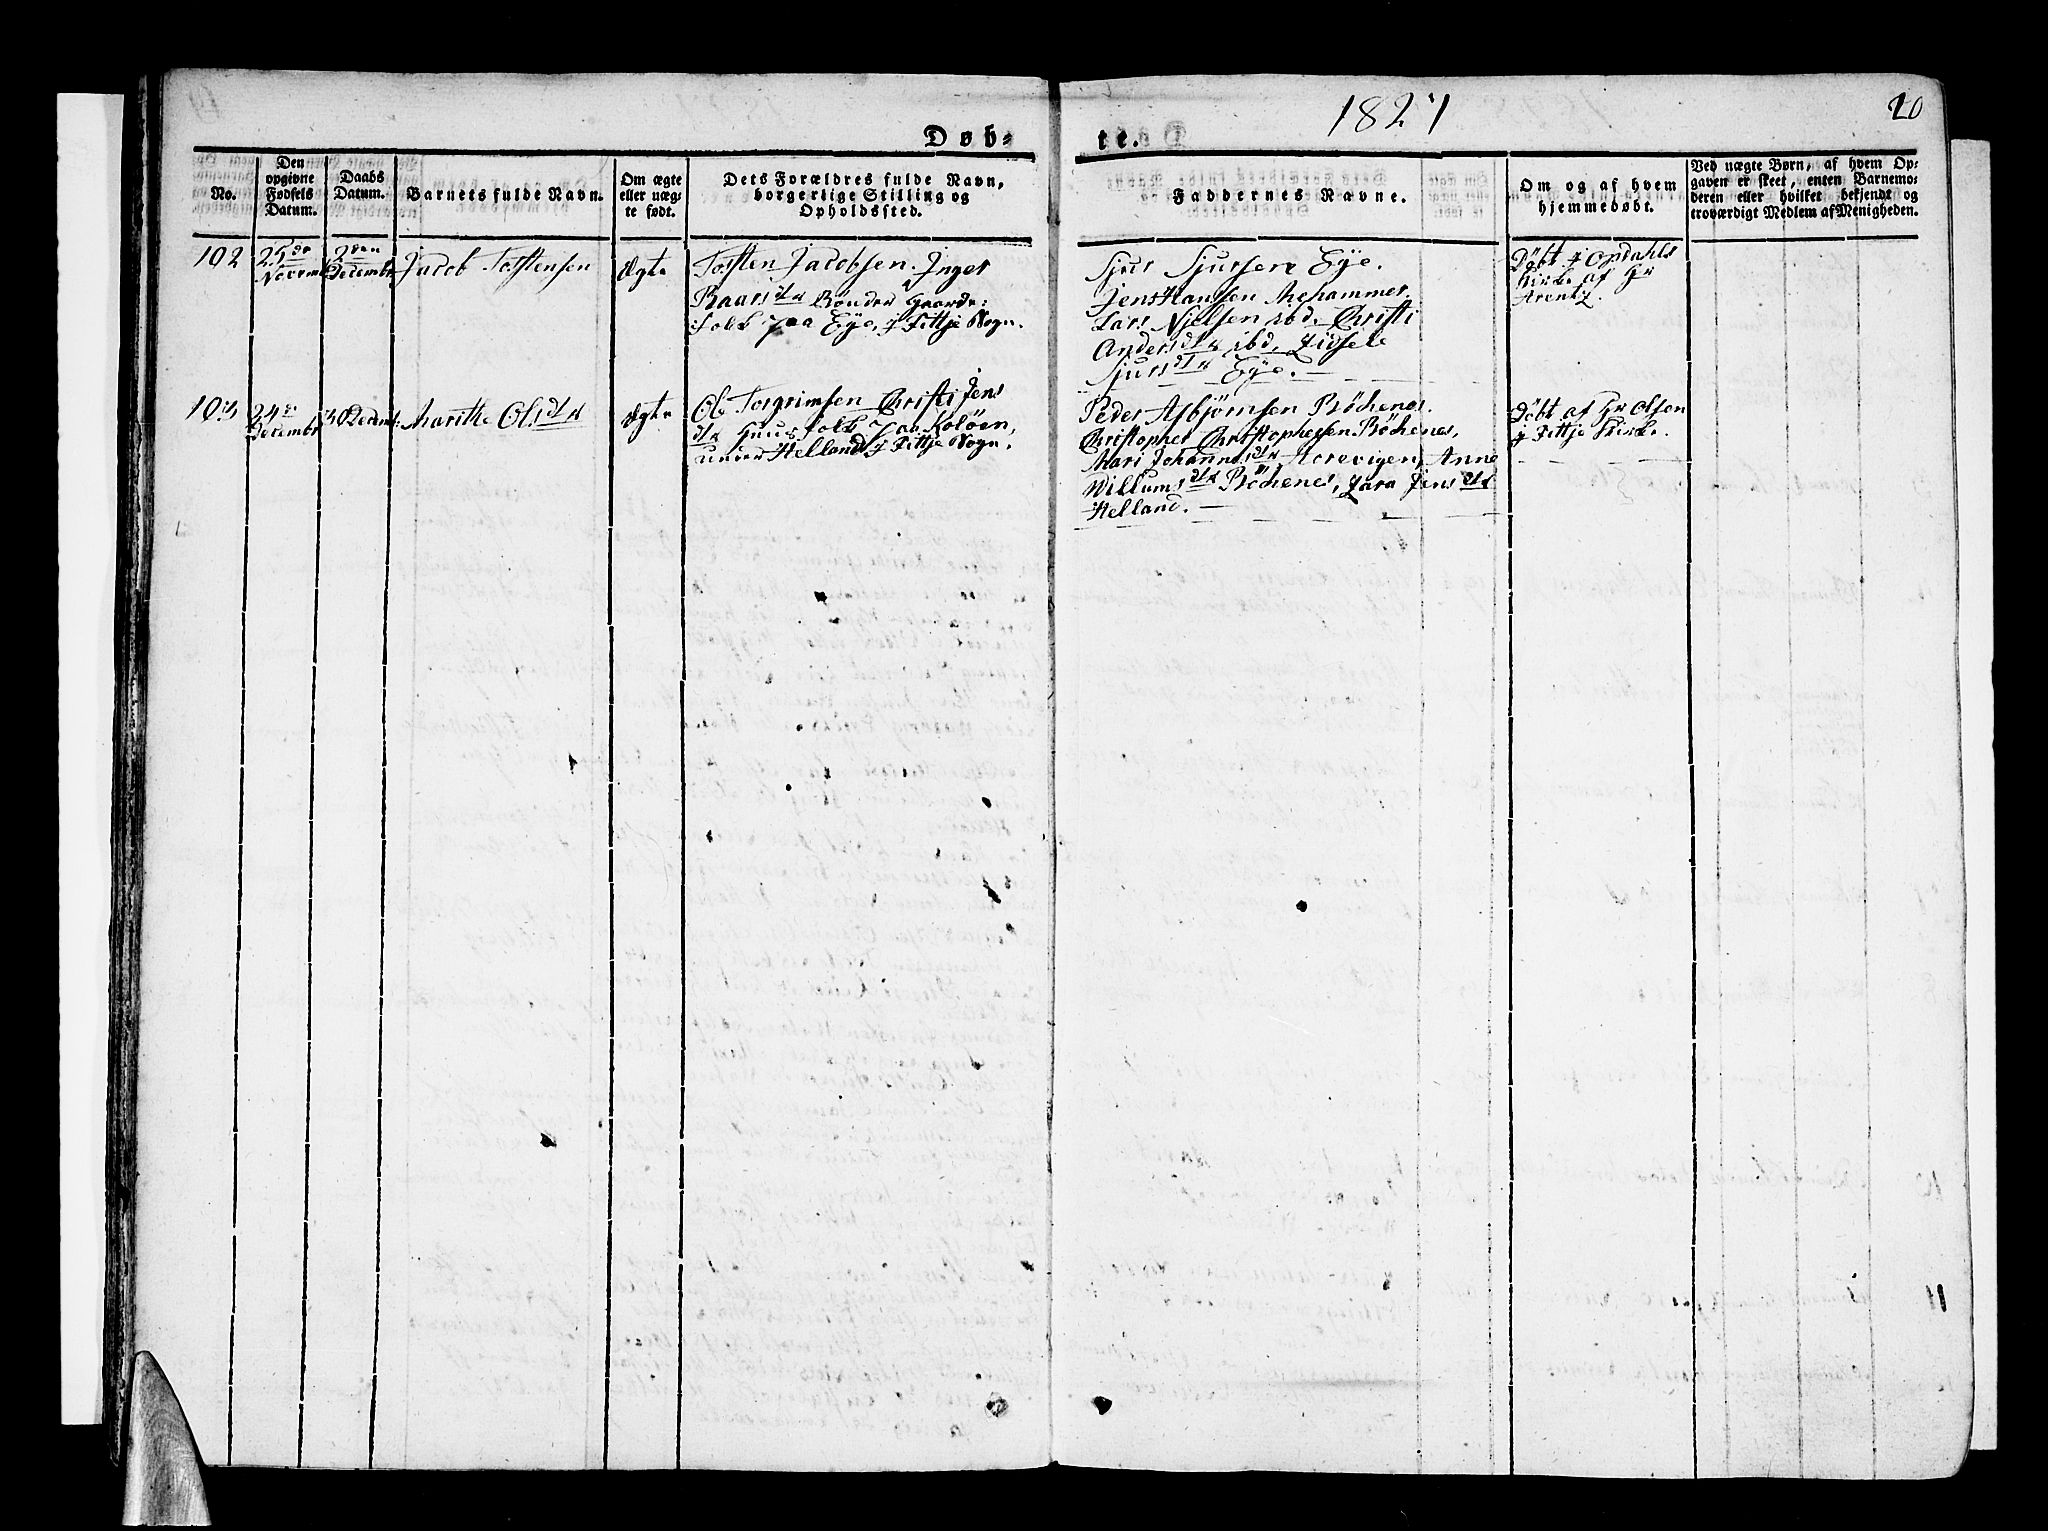 1827
20
Døb-
te.
No.
Den opgivne Fødsels Datum.
Daabs Datum.
Barnets fulde Navn.
Om ægte eller uægte født.
Dets Forældres fulde Navn, borgerlige Stilling og Opholdssted.
Faddernes Navne.
Om og af hvem hjemmedøbt.
Ved uægte Børn, af hvem Opgaven er skeet, enten Barnemoderen eller hvilket bekjendt og troværdigt Medlem af Menigheden.
102
25de
Novemb
2den
Decembr
Jacob Torstensen
Ægte
Torsten Jacobsen. Inger
Baarsdtr Bönder Gaards:
folk paa Eye, i Fittje Sogn.
Sjur Sjursen Eye.
Jens Hanssen Mehammer,
Lars Njelsen ibd. Christi
Andersdtr ibd, Zidsele
Sjursdtr Eye.
Döbt i Opdahls
Kirke af Hr
Arentz.
103
24de
Decembr
Decembr
Marithe Olsdtr
Ægte
Ole Torgrimsen Christi Jens
dtr Huusfolk paa Kolöen,
under Helland i Fittje Sogn.
Peder Asbjörnsen Böchenes.
Christopher Christophersen Böchenes,
Mari Johannesdtr Aarevigen, Anne
Willumsdtr Böchenes, Zara Jensdtr
Helland.
Döbt af Hr Olsen
i Fittje Kirke.